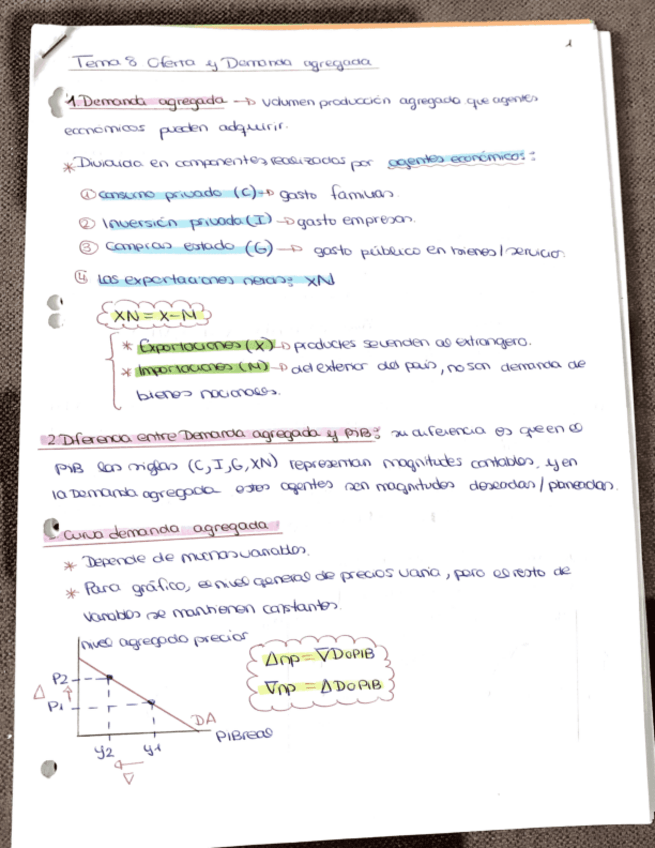 1
Tema 8 Oferta y Demanda agregada
1 Demanda agregada → volumen producción agregado que agentes
económicos pueden adquirir.
* Dividida en componentes, realizados por agentes económicos:
① consumo privado (C) → gasto familias.
② Inversión privada (I) → gasto empresas.
③ Compras estado (G) → gasto público en bienes/servicios.
④ Las exportaciones netas: XN
XN = X-M
* Exportaciones (X) → productos se venden al extranjero.
* Importaciones (M) → del exterior del país, no son demanda de
bienes nacionales.
2 Diferencia entre Demanda agregada y PIB: su diferencia es que en el
PIB las siglas (C, I, G, XN) representan magnitudes contables, y en
la Demanda agregada estos agentes son magnitudes deseadas/planeadas.
Curva demanda agregada
* Depende de muchas variables.
* Para gráfico, el nivel general de precios varia, pero el resto de
variables se mantienen constantes.
nivel agregado precios
Δnp = ∇DoPIB
∇np = ΔDoPIB
P2
Δ ↑
P1
DA
PIBreal
y2 y1
←
∇